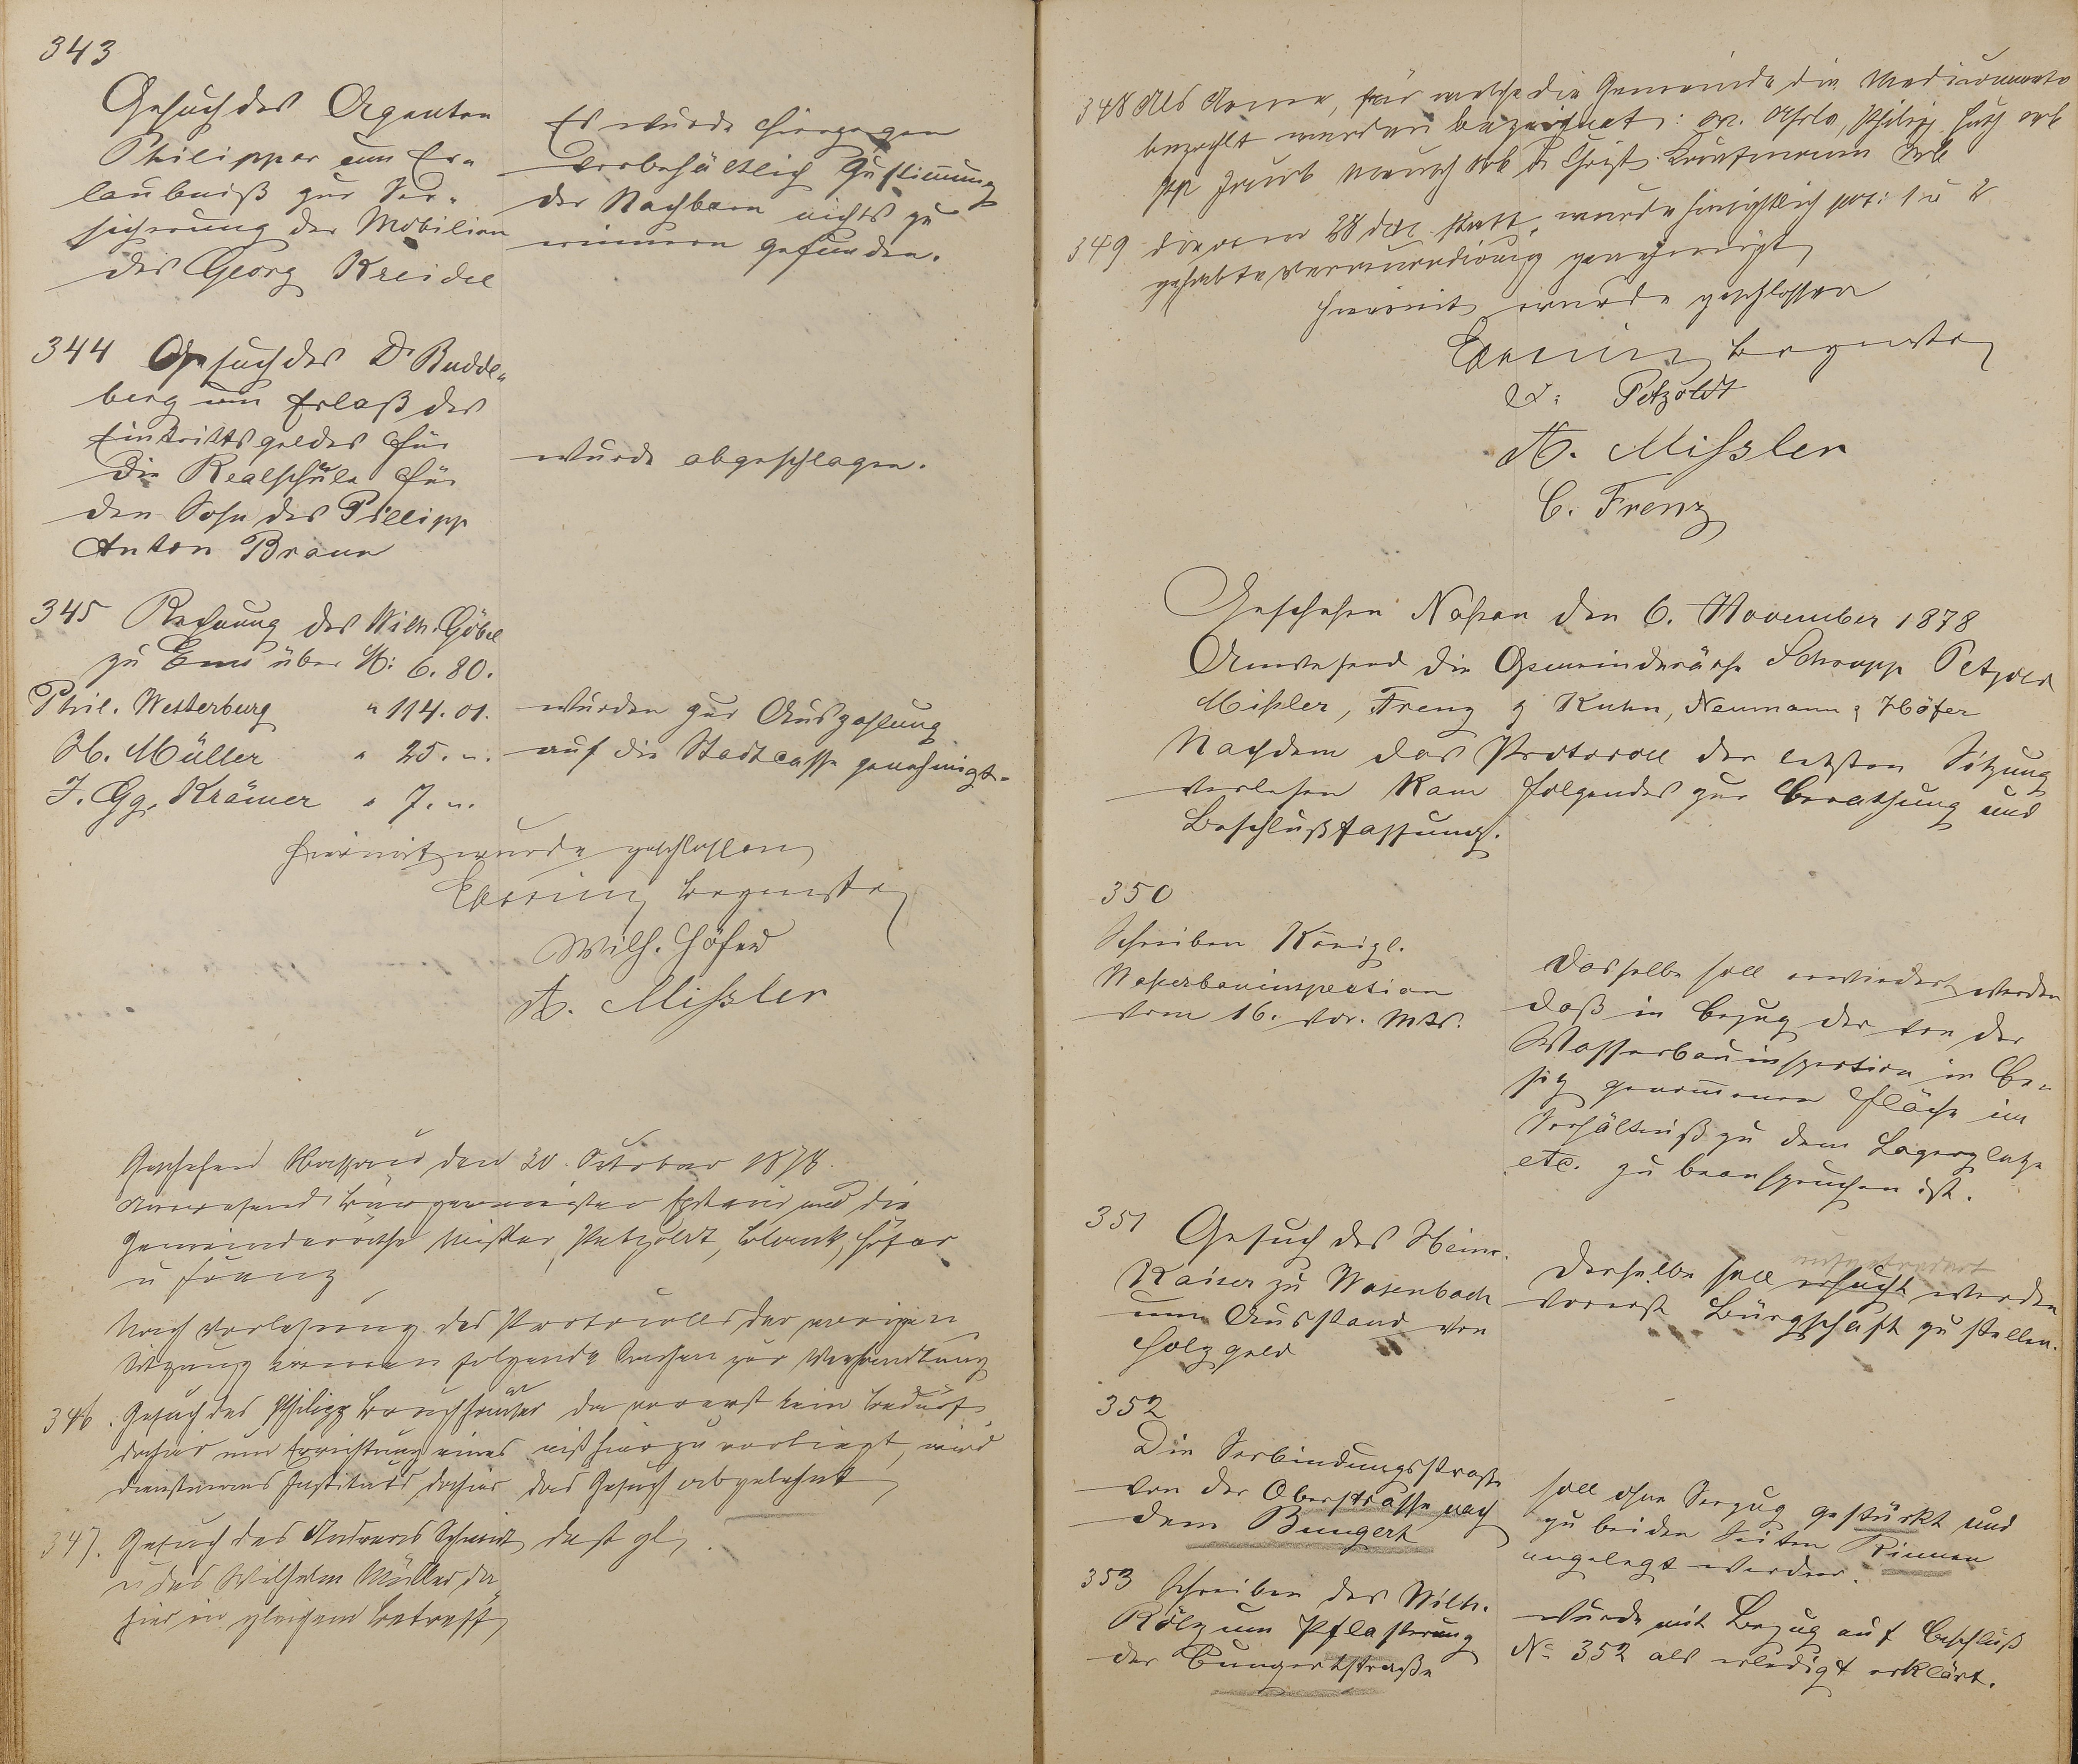 343
Gesuch des Agenten
Philippar um Er-
laubniß zur Ver-
sicherung der Mobilien
des Georg Kreidel
Es wurde hiergegen
vorbehältlich Zustimmung
der Nachbarn nichts zu
erinnern gefunden.
344 Gesuch des Dr Budde-
berg um Erlaß des
Eintrittsgeldes für
die Realschule für
den Sohn des Pillipp
Anton Braun
wurde abgeschlagen.
345 Rechnung des Wilh. Göbel
zu Ems über M: 6.80.
Phil. Westerburg " 114.01.
H. Müller " 25. ".
J. Gg. Krämer " 7. ".
wurden zur Auszahlung
auf die Stadtcasse genehmigt.
Hiermit wurde geschlossen
Wilh. Höfer
A. Mißler
Geschehen Nassau den 30. October 1878.
Anwesend Bürgermeister und die
Gemeinderäthe Mißler, Petzoldt, Blank, Höfer
u Frenz
Nach Vorlesung des Protocolls der vorigen
Sitzung kamen folgende Sachen zur Verhandlung
346. Gesuch des Philipp Bruchhäuser
dahier um Errichtung eines
Dienstmanns Instituts dahier
da vorerst kein Bedürf
niß hierzu vorliegt, wird
das Gesuch abgelehnt
347. Gesuch des Andreas Schmidt
u des Wilhelm Müller da
hier in gleichem Betreff
desgl.
348 Als Arme, für welche die Gemeinde die Medicamente
bezahlt werden bezeichnet: Philipp
349 die am 28 d. M. statt
gehabte genehmigt
Hiermit wurde geschlossen
Petzoldt
A. Mißler
C. Frenz
Geschehen Naßau den 6. November 1878
Anwesend die Gemeinderäthe Schrupp Petzold
Mißler, Frenz, Kuhn, Neumann, Höfer
Nachdem das Protocoll der letzten Sitzung
verlesen kam folgendes zur Berathung und
Beschlußfassung.
350
Schreiben Königl.
Waßerbauinspection
vom 16. vor. Mts.
Dasselbe soll erwiedert werden
daß in Bezug der von der
Wasserbauinspection in Be-
sitz genommenen Fläche im
Verhältniß zu dem Lagerplatze
etc. zu beanspruchen ist.
351 Gesuch des Heinr.
Kaiser zu Wasenbach
um Ausstand von
Holzgeld
Derselbe soll ersucht werden
vorerst Bürgschaft zu stellen.
352
Die Verbindungsstraße
von der Oberstrasse nach
dem Bungert
soll ohne Verzug gestückt und
zu beiden Seiten Rinnen
angelegt werden.
353 Schreiben des Wilh.
Kölz um Pflasterung
der Bungertstraße
wurde mit Bezug auf Beschluß
No 352 als erledigt erklärt.